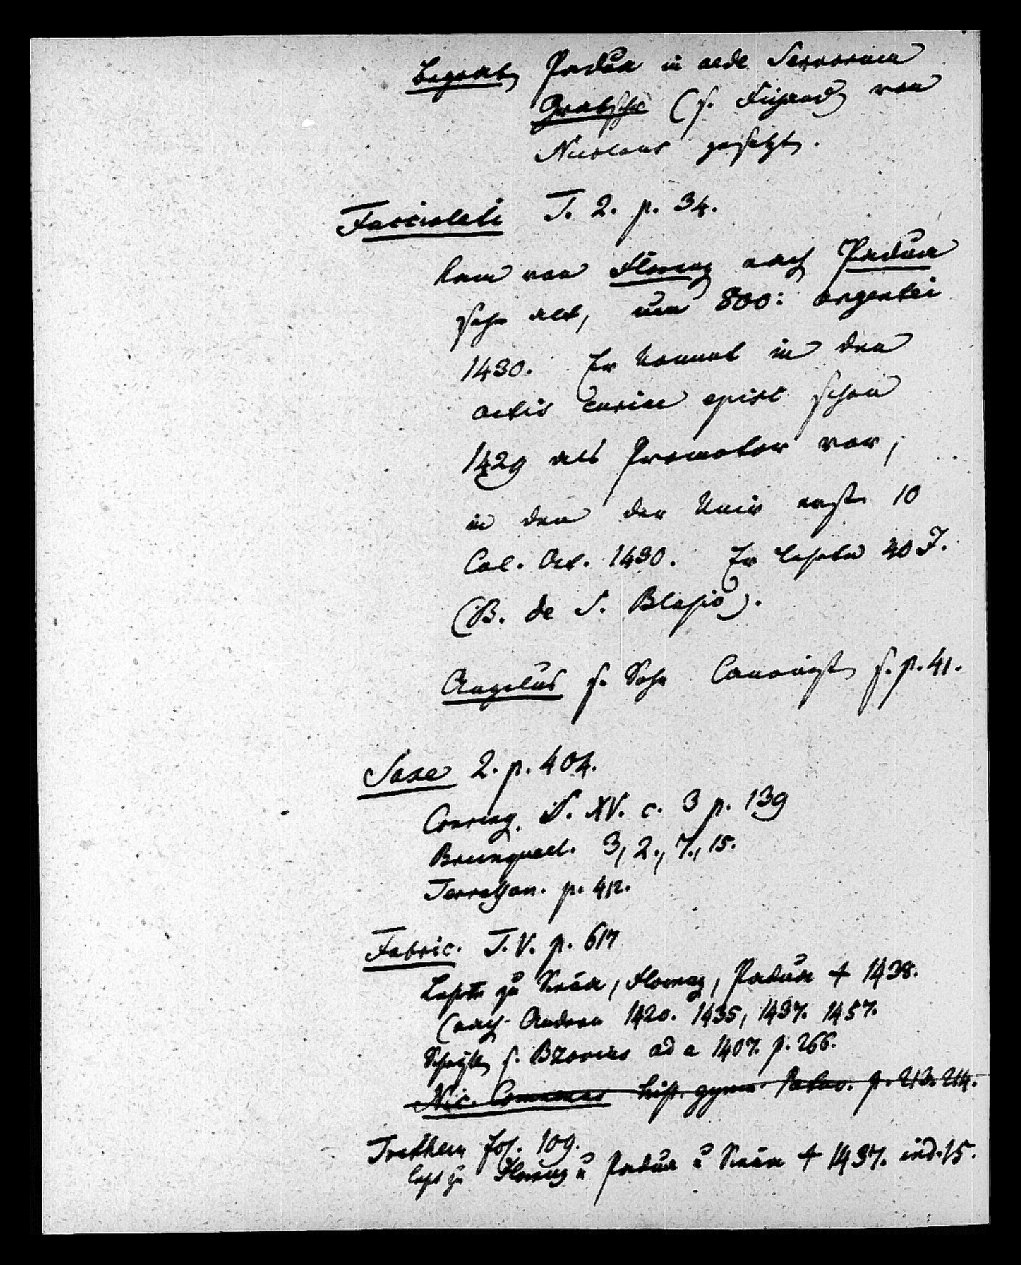 Begraben Padua in aede Servorum
Grabschr (s. Fichard) von
Nicolaus gesetzt.
Facciolati T. 2. p. 34.
kam von Florenz nach Padua
sehr alt, um 800: argentei
1430. Er kommt in den
actis curiae episc schon
1429 als Promotor vor,
in den der Univ erst 10
Cal. Oct. 1430. Er lehrte 20 J.
(B. de S. Blasio).
Angelus s. Sohn Canonist s. p. 41.
Saxe 2. p. 404.
Conring. S. XV. c. 3 p. 139
Brunquell. 3, 2., 7., 15.
Terrasson. p. 412.
Fabric. T. V. p. 617
Lehrte zu Siena, Florenz, Padua + 1438.
(nach Andern 1420. 1435, 1437. 1457.
Schriften s. Bzovius ad a 1407. p. 266.
Nic. Comnenus hist. gymn. Patav. p. 213. 214.
Trithem fol. 109.
lehrt zu Florenz u Padua u Siena + 1437. ind. 15.